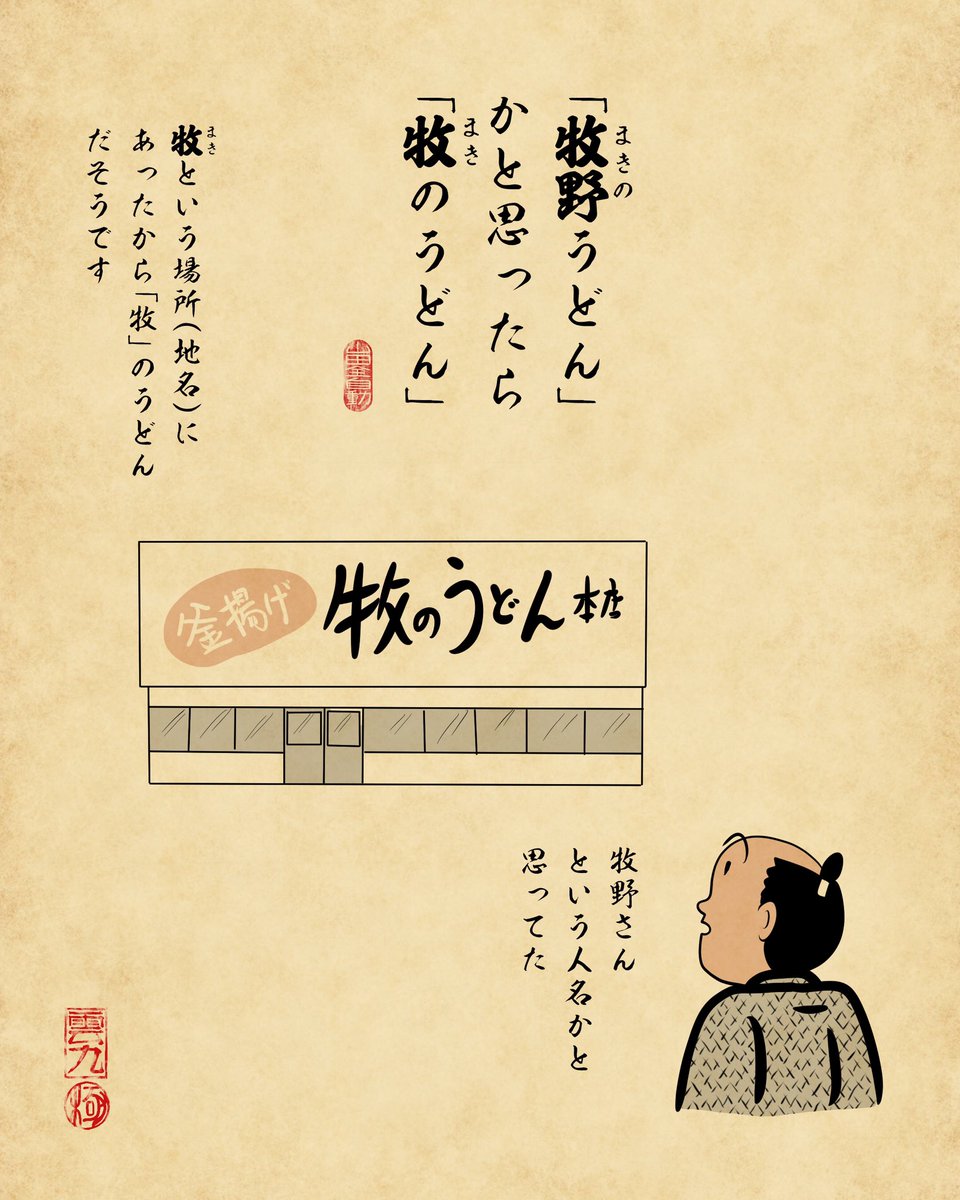 「牧野うどん」
まきの
かと思ったら
「牧のうどん」
まき
牧という場所(地名)に
まき
あったから「牧」のうどん
だそうです
釜揚げ
牧のうどん本店
牧野さん
という人名かと
思ってた